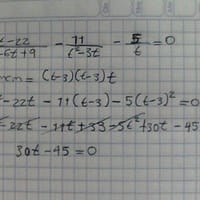 -22 / -6t+9 - 11 / t²-3t - 5 / t = 0
mcm = (t-3)(t-3)t
-22t - 11(t-3) - 5(t-3)² = 0
-22t - 11t + 33 - 5t² + 30t - 45
30t - 45 = 0